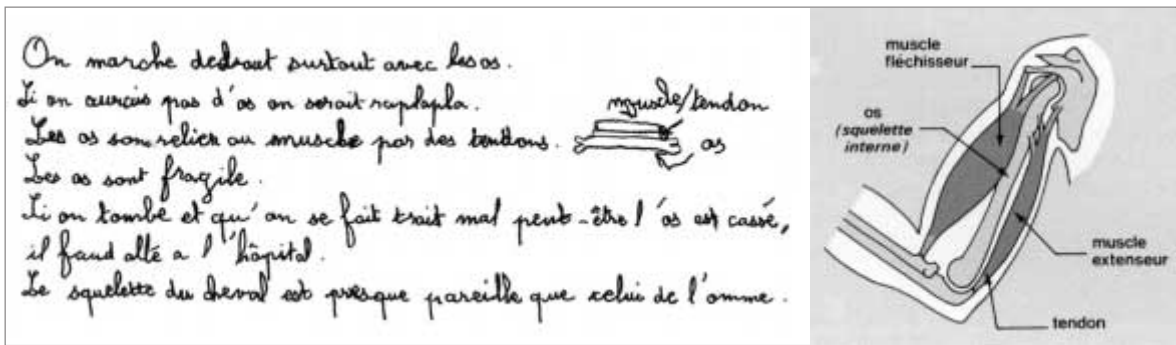 On marche dedraut surtout avec les os.
Si on aurais pas d'os on serait raplapla.
Les os son relier au muscle par des tendons.
muscle/tendon
os
Les os sont fragile.
Si on tombe et qu'on se fait trait mal peut-être l'os est cassé,
il faud allé a l'hôpital.
Le squelette du cheval est presque pareille que celui de l'omme.
muscle
fléchisseur
os
(squelette
interne)
muscle
extenseur
tendon